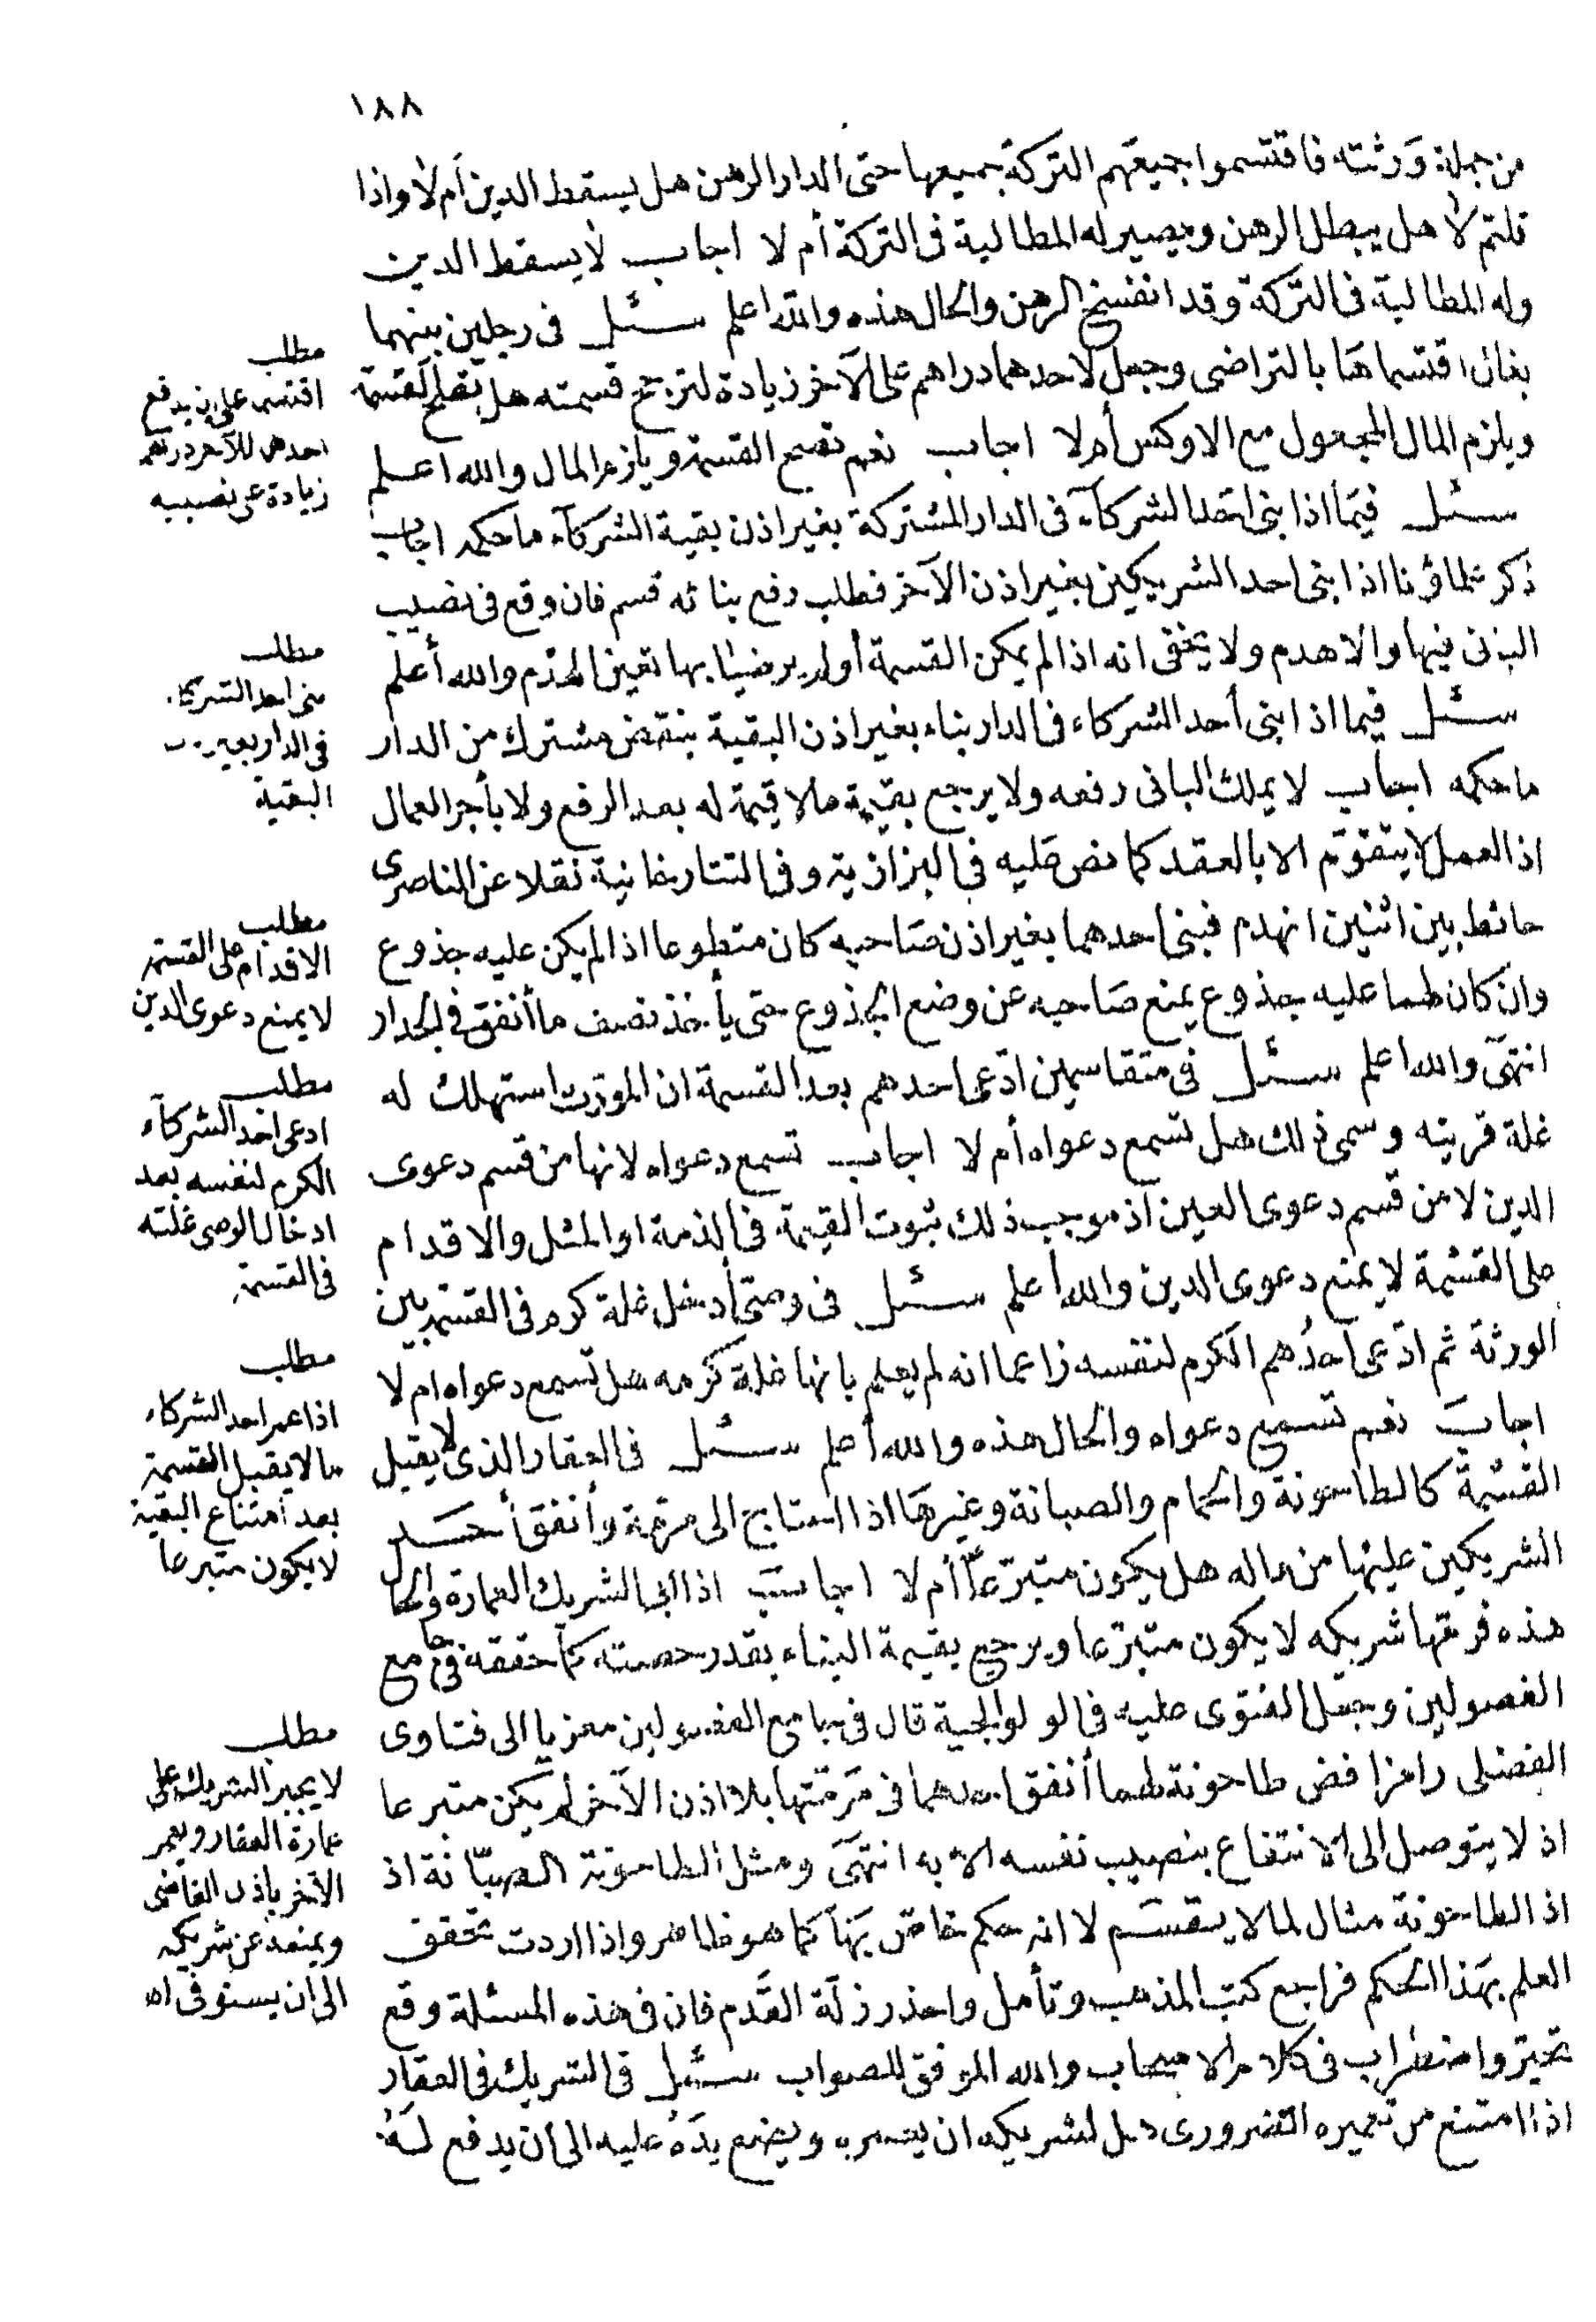 ١٨٨
من جملة ورثته فاقتسموا جميعهم التركة جميعها حتى الدار الرهن هل يسقط الدين أم لا واذا
قلتم لا هل يبطل الرهن ويصير له المطالبة فى التركة أم لا اجاب لا يسقط الدين
وله المطالبة فى التركة وقد انفسخ الرهن والحال هذه والله اعلم سئل فى رجلين بينهما
بغلان اقتسماها بالتراضى وجعل لاحدهما دراهم على الآخر زيادة لترجح قسمته هل تصح القسمة
ويلزم المال المجعول مع الاوكس أم لا اجاب نعم تصح القسمة ويلزم المال والله اعلم
سئل فيما اذا بنى احد الشركآء فى الدار المشتركة بغير اذن بقية الشركآء ما حكمه اجاب
ذكر علماؤنا اذا بنى احد الشريكين بغير اذن الآخر فطلب رفع بنائه قسم فان وقع فى نصيب
البانى فبها والا هدم ولا يخفى انه اذا لم يمكن القسمة أو لم يرضيا بها تعين الهدم والله أعلم
سئل فيما اذا بنى أحد الشركاء فى الدار بناء بغير اذن البقية بنقض مشترك من الدار
ما حكمه اجاب لا يملك البانى رفعه ولا يرجع بقيمة ما لا قيمة له بعد الرفع ولا بأجر العمال
اذ العمل لا يتقوم الا بالعقد كما نص عليه فى البزازية وفى التتارخانية نقلا عن الناصرى
حائط بين اثنين انهدم فبنى احدهما بغير اذن صاحبه كان متطوعا اذا لم يكن عليه جذوع
وان كان لهما عليه جذوع يمنع صاحبه عن وضع الجذوع حتى يأخذ نصف ما أنفق فى الجدار
انتهى والله اعلم سئل فى متقاسمين ادعى احدهم بعد القسمة ان المورث استهلك له
غلة قريته وسمى ذلك هل تسمع دعواه أم لا اجاب تسمع دعواه لانها من قسم دعوى
الدين لا من قسم دعوى العين اذ موجب ذلك ثبوت القيمة فى الذمة او المثل والاقدام
على القسمة لا يمنع دعوى الدين والله أعلم سئل فى وصى أدخل غلة كرم فى القسمة بين
الورثة ثم ادعى احدهم الكرم لنفسه زاعما انه لم يعلم بانها غلة كرمه هل تسمع دعواه ام لا
اجاب نعم تسمع دعواه والحال هذه والله أعلم سئل فى العقار الذى لا يقبل
القسمة كالطاحونة والحمام والصبانة وغيرها اذا احتاج الى مرمة وأنفق أحد
الشريكين عليها من ماله هل يكون متبرعا أم لا اجاب اذا ابى الشريك العمارة والحال
هذه فرمها شريكه لا يكون متبرعا ويرجع بقيمة البناء بقدر حصته كما حققه فى جامع
الفصولين وجعل الفتوى عليه فى الولوالجية قال فى جامع الفصولين معزيا الى فتاوى
الفضلى رامزا فض طاحونة لهما أنفق احدهما فى مرمتها بلا اذن الآخر لم يكن متبرعا
اذ لا يتوصل الى الانتفاع بنصيب نفسه الا به انتهى ومثل الطاحونة الصبانة اذ
اذ الطاحونة مثال لما لا يقسم لا انه حكم خاص بها كما هو ظاهر واذا اردت تحقق
العلم بهذا الحكم فراجع كتب المذهب وتأمل واحذر زلة القدم فان فى هذه المسئلة وقع
تحير واضطراب فى كلام الاصحاب والله الموفق للصواب سئل فى الشريك فى العقار
اذا امتنع من تعميره الضرورى هل لشريكه ان يعمره ويضع يده عليه الى ان يدفع له
مطلب
اقتسم على ان يدفع
احدهما للآخر دراهم
زيادة عن نصيبه
مطلب
بنى احد الشركاء
فى الدار بغير
البقية
مطلب
الاقدام على القسمة
لا يمنع دعوى الدين
مطلب
ادعى احد الشركآء
الكرم لنفسه بعد
ادخال الوصى غلته
فى القسمة
مطلب
اذا عمر احد الشركاء
ما لا يقبل القسمة
بعد امتناع البقية
لا يكون متبرعا
مطلب
لا يجبر الشريك على
عمارة العقار ويعمر
الآخر باذن القاضى
ويمنعه عن شريكه
الى ان يستوفى اه